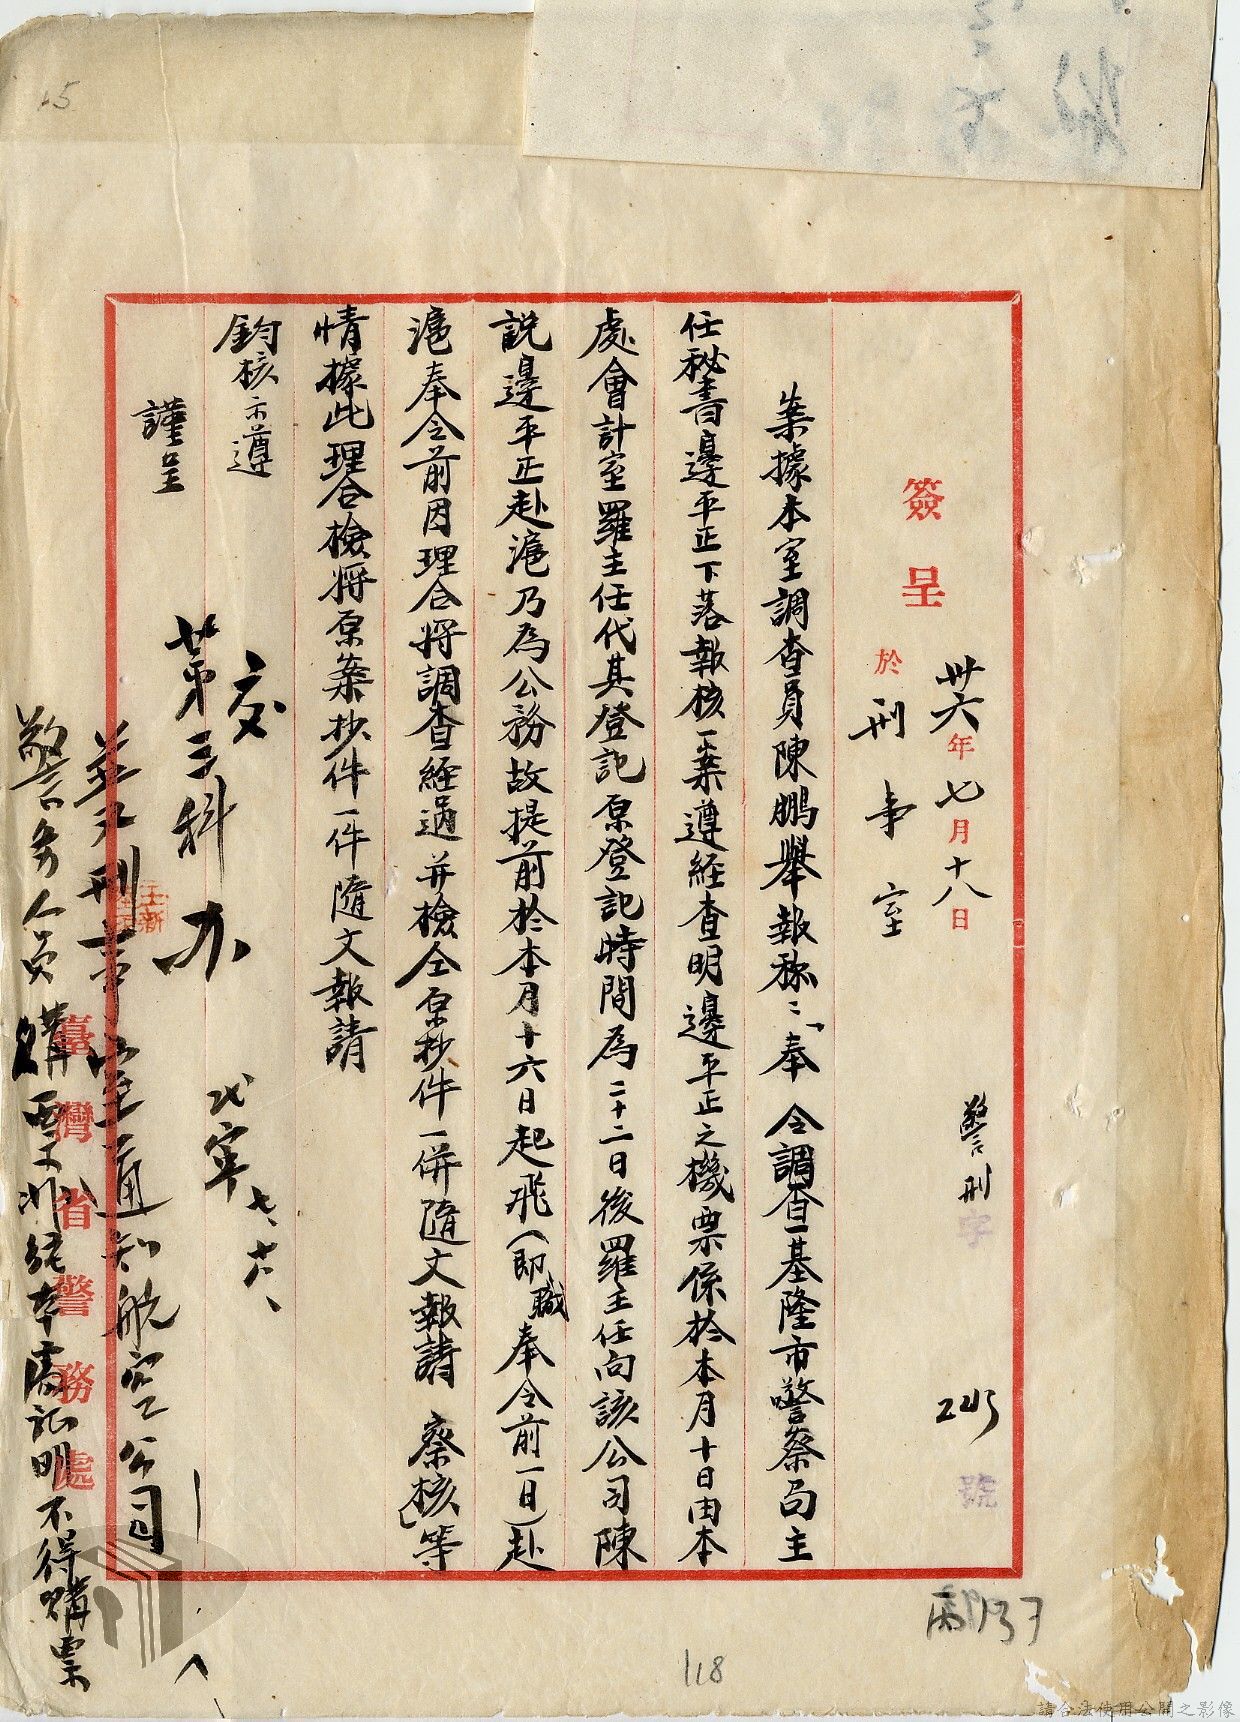 簽呈
卅六年七月十八日
於刑事室
警刑字
245
號
案據本室調查員陳鵬舉報稱：「奉 令調查基隆市警察局主
任秘書邊平正下落報核一案遵經查明邊平正之機票係於本月十日由本
處會計室羅主任代其登記原登記時間為二十二日後羅主任向該公司陳
說邊平正赴滬乃為公務故提前於本月十六日起飛（即職奉令前一日）赴
滬奉令前因理合將調查經過并檢仝原抄件一併隨文報請 察核」等
情據此理合檢將原案抄件一件隨文報請
鈞核示遵
謹呈
交
第三科办
七、十八、
並又刑事室通知航空公司
警務人員購票非經本處証明不得購票
臺灣省警務處
15
118
137
請合法使用公開之影像